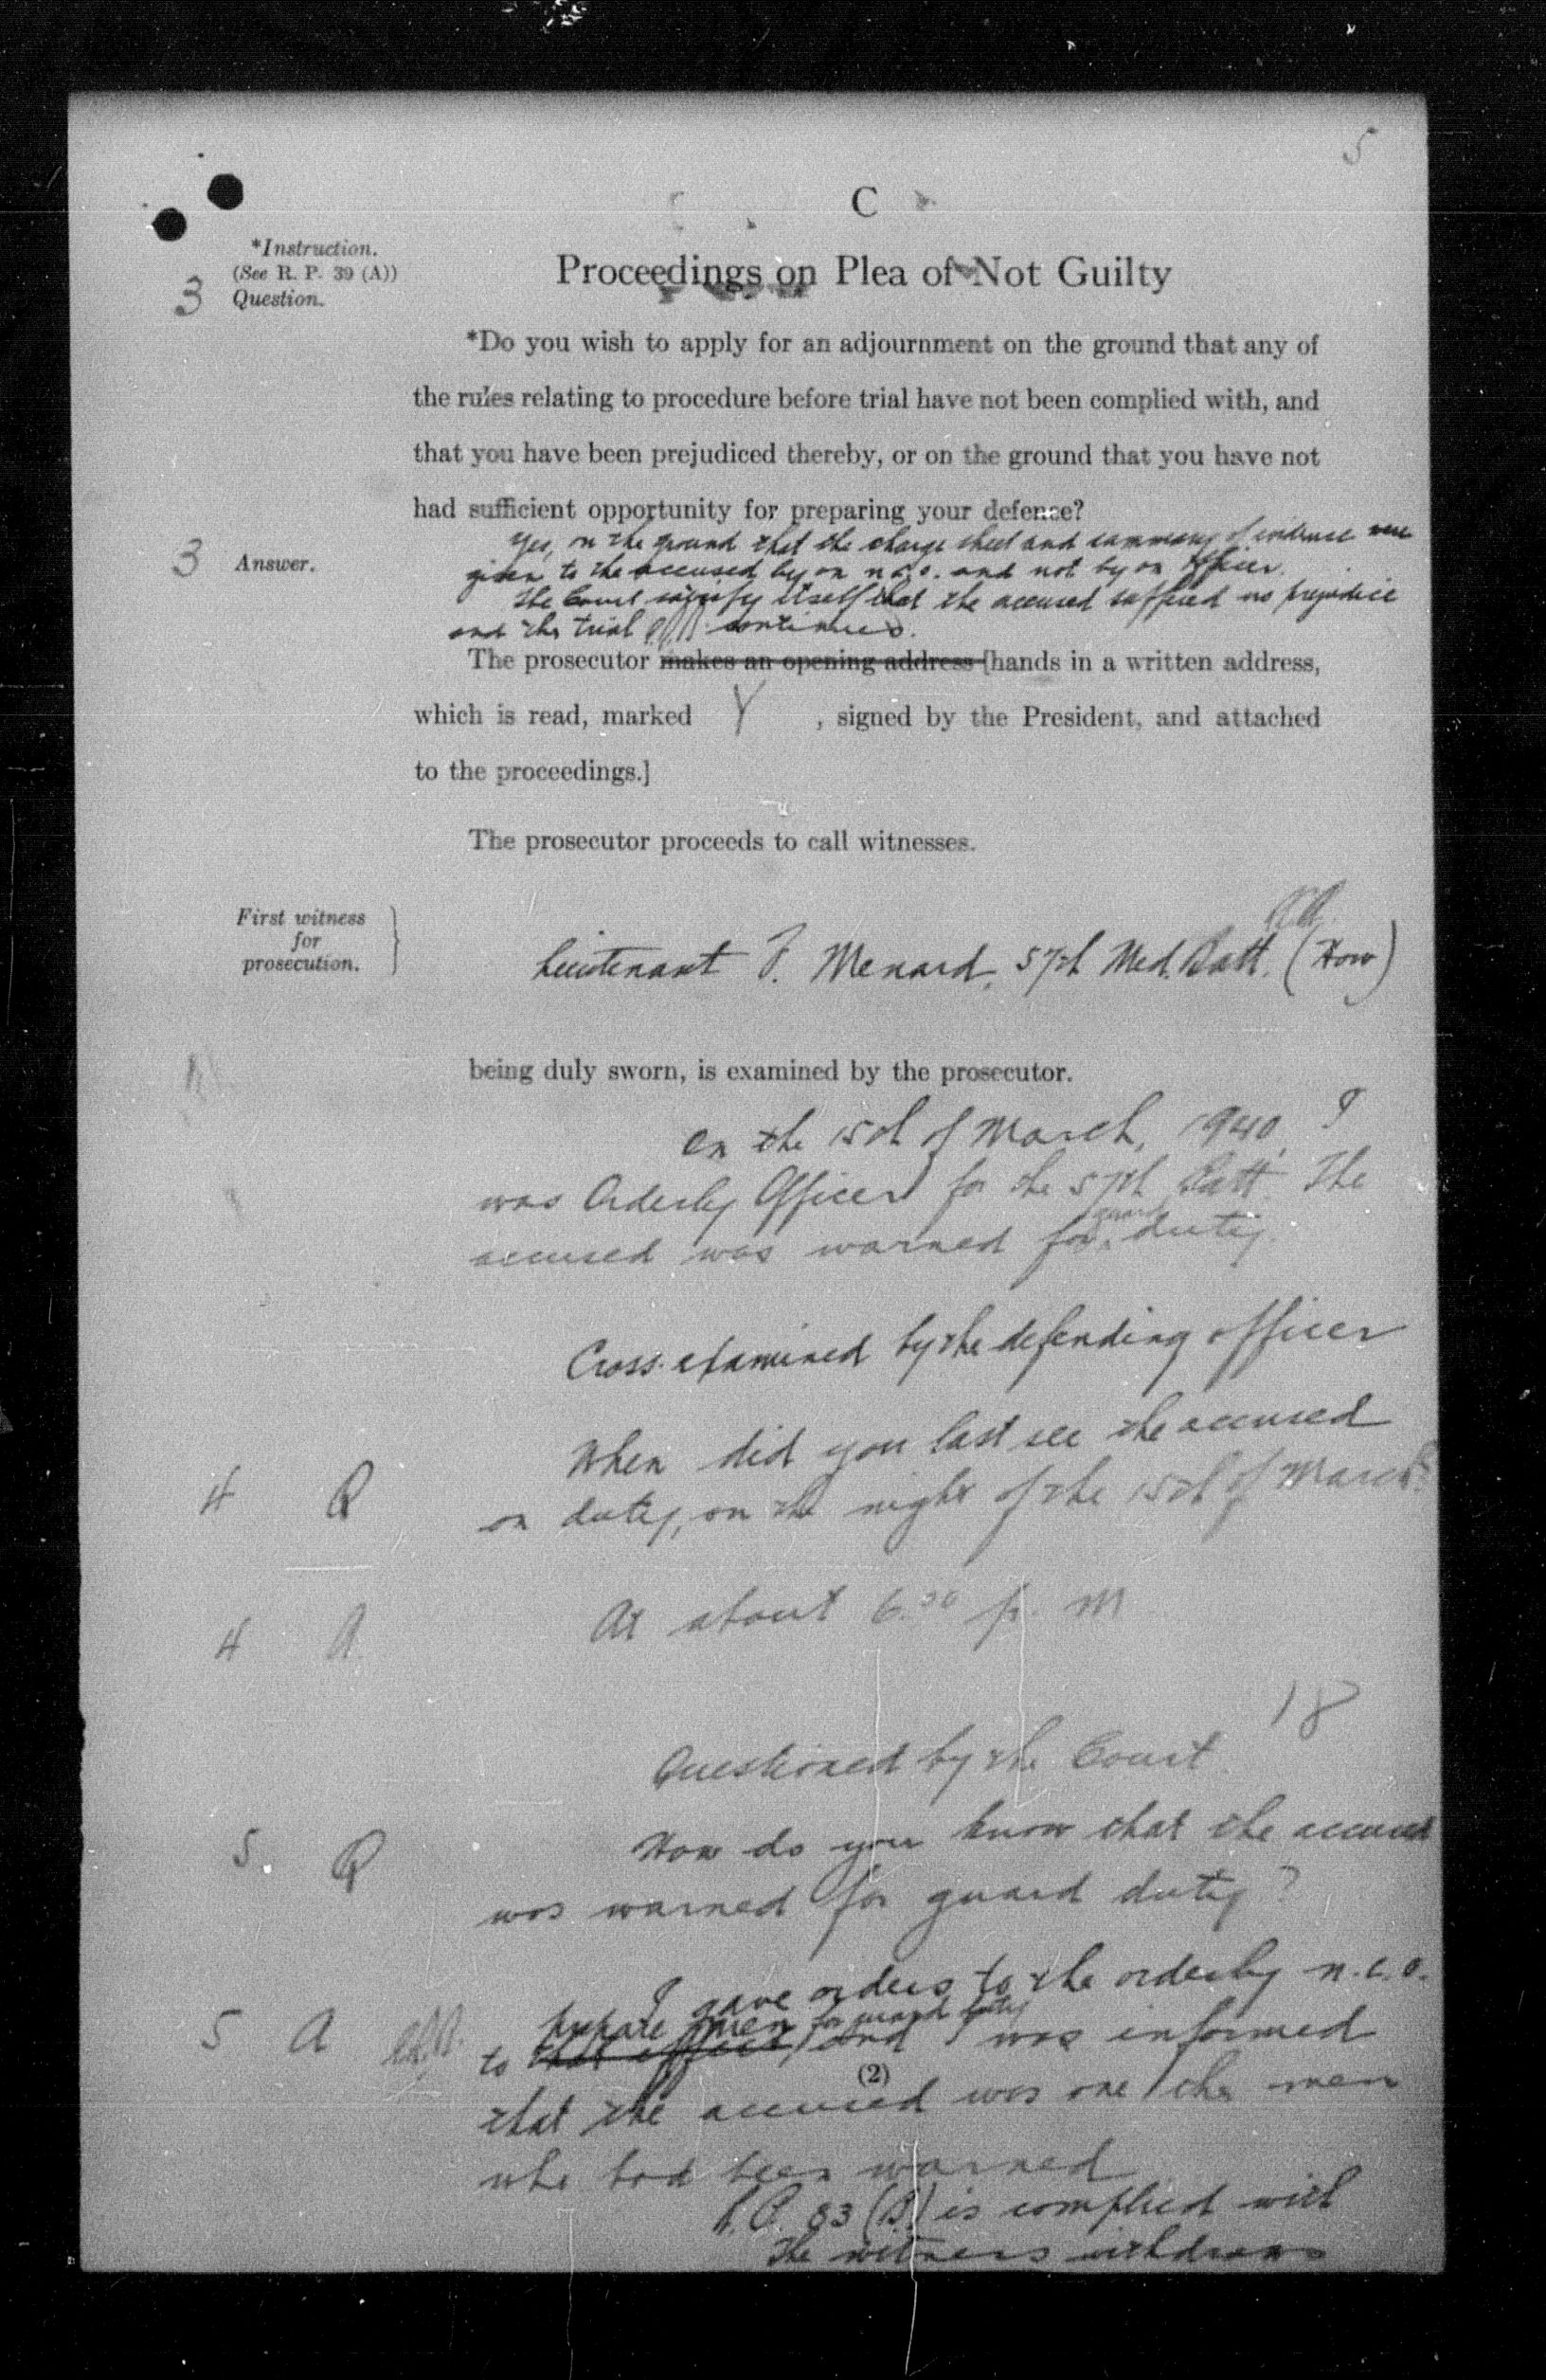 5
C
*Instruction.
(See R. P. 39 (A))
3 Question.
Proceedings on Plea of Not Guilty
*Do you wish to apply for an adjournment on the ground that any of
the rules relating to procedure before trial have not been complied with, and
that you have been prejudiced thereby, or on the ground that you have not
had sufficient opportunity for preparing your defence?
3 Answer.
Yes, on the ground that the charge sheet and summary of evidence were
given to the accused by an n.c.o. and not by an Officer.
The Court satisfy itself that the accused suffered no prejudice
and the trial continues.
The prosecutor makes an opening address [hands in a written address,
which is read, marked Y , signed by the President, and attached
to the proceedings.]
The prosecutor proceeds to call witnesses.
First witness
for
prosecution.
Lieutenant F. Menard, 57th Med. Batt. (How)
being duly sworn, is examined by the prosecutor.
On the 15th of March, 1940, I
was Orderly Officer for the 57th Batt. The
accused was warned for guard duty.
Cross-examined by the defending officer
4 Q When did you last see the accused
on duty, on the night of the 15th of March?
4 A. At about 6.30 p. m
18
Questioned by the Court.
5. Q How do you know that the accused
was warned for guard duty?
5 A I gave orders to the orderly n.c.o.
prepare men for guard duty
to that effect, and I was informed
(2)
that the accused was one the men
who had been warned
R.P. 83 (B) is complied with
The witness withdraws